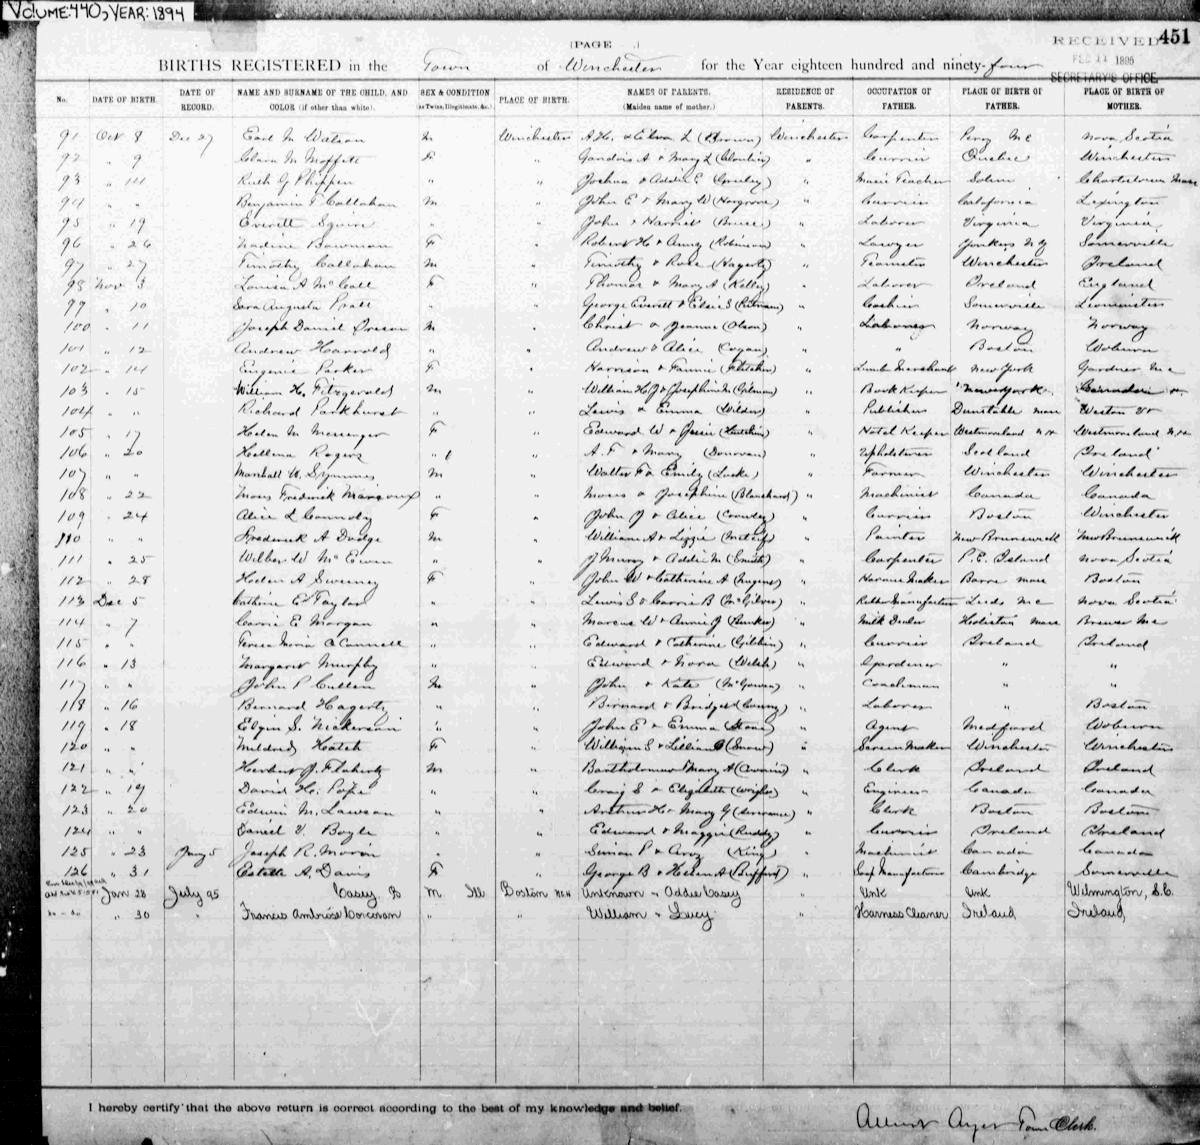 VOLUME: 440, YEAR: 1894
(PAGE .)
RECEIVED 451
FEB 11 1895
SECRETARY'S OFFICE.
BIRTHS REGISTERED in the Town of Winchester for the Year eighteen hundred and ninety-four
No. DATE OF BIRTH. DATE OF RECORD. NAME AND SURNAME OF THE CHILD, AND COLOR (if other than white). SEX & CONDITION (as Twins, Illegitimate, &c.) PLACE OF BIRTH. NAMES OF PARENTS. (Maiden name of mother.) RESIDENCE OF PARENTS. OCCUPATION OF FATHER. PLACE OF BIRTH OF FATHER. PLACE OF BIRTH OF MOTHER.
91 Oct 8 Dec 27 Earl M Watson M Winchester A.H. & L (Brown) Winchester Carpenter Perry Me Nova Scotia
92 " 9 Clara M Moffitt F " A & Mary L " Currier Quebec Winchester
93 " 14 Ruth G Phippen " " Joshua & Addie E " Music Teacher Salem Charlestown Mass
94 " " Benjamin F Callahan M " John E & Mary W (Hargrove) " Currier California Lexington
95 " 19 Everett Squire " " John & Harriet (Bruce) " Laborer Virginia Virginia
96 " 26 Nadine Bowman F " Robert H & Anny (Robinson) " Lawyer Yonkers NY Somerville
97 " 27 Timothy Callahan M " Timothy & Rose (Hagerty) " Teamster Winchester Ireland
98 Nov 3 Louisa A McCall F " Thomas & Mary A (Kelley) " Laborer Ireland England
99 " 10 Sara Augusta Pratt " " George Everett & Elsie S (Putnam) " Cashier Somerville Leominster
100 " 11 Joseph Daniel M " Christ & Jeanne (Olson) " Laborer Norway Norway
101 " 12 Andrew Harrold " " Andrew & Alice (Cogan) " " Boston Woburn
102 " 14 Eugenie Parker F " Harrison & Fannie (Fletcher) " Lumb Merchant New York Gardner Me
103 " 15 William H. Fitzgerald M " William H J & Josephine M (Gilman) " Book Keeper New York
104 " " Richard Parkhurst " " Lewis & Emma (Wilder) " Publisher Dunstable Mass Weston Vt
105 " 17 Helen M Messenger F " Edward W & Jessie " Hotel Keeper Westmoreland N.H. Westmoreland N.H.
106 " 20 Hellena Rogers " " A. F & Mary (Donovan) " Upholsterer Scotland Ireland
107 " " Marshall W. Symmes M " Walter F & Emily (Locke) " Farmer Winchester Winchester
108 " 22 Moses Frederick " " Moses & Josephine (Blanchard) " Machinist Canada Canada
109 " 24 Alice L Connolly F " John J & Alice (Crowley) " Currier Boston Winchester
110 " " Frederick A Dodge M " William A & Lizzie (Metcalf) " Painter New Brunswick New Brunswick
111 " 25 Wilber W McEwen " " J Murray & Addie M (Smith) " Carpenter P.E. Island Nova Scotia
112 " 28 Helen A Sweeney F " John W & Catherine A (Nugent) " Harness Maker Barre Mass Boston
113 Dec 5 Cathrine E Taylor " " Lewis S & Carrie B " Rubber Manufacturer Leeds Me Nova Scotia
114 " 7 Carrie E Morgan " " Marcus W & Annie J " Milk Dealer Holliston Mass Brewer Me
115 " " Teresa Maria O'Connell " " Edward & Catherine " Currier Ireland Ireland
116 " 13 Margaret Murphy " " Edward & Nora (Welch) " Gardener " "
117 " " John P Cullen M " John & Kate (McGowen) " Coachman " "
118 " 16 Bernard Hagerty " " Bernard & Bridget " Laborer " Boston
119 " 18 Elgin S. Nickerson " " John E & Emma (Stone) " Agent Medford Woburn
120 " " Mildred Hatch F " William S & Lillian B (Snow) " Screen Maker Winchester Winchester
121 " " Herbert J. Flaherty M " Bartholomew & Mary A " Clerk Ireland Ireland
122 " 19 David H. Pope " " Craig S & Elizabeth (Wright) " Engineer Canada Canada
123 " 20 Edwin M. Lawson " " Arthur H & Mary G " Clerk Boston Boston
124 " " Daniel V. Boyle " " Edward & Maggie (Ruddy) " Currier Ireland Ireland
125 " 23 Jany 5 Joseph R. Morin " " Simon P & (King) " Machinist Canada Canada
126 " 31 Estelle A. Davis F " George B & Helen A (Bufford) " Soap Manufacturer Cambridge Somerville
Jan 28 July 95 Casey B M Ill Boston Unknown - Addie Casey " Unk Unk Wilmington, S.C.
" 30 " Francis Ambrose Corcoran " " William - Lucy " Harness Cleaner Ireland Ireland
I hereby certify that the above return is correct according to the best of my knowledge and belief.
Town Clerk.